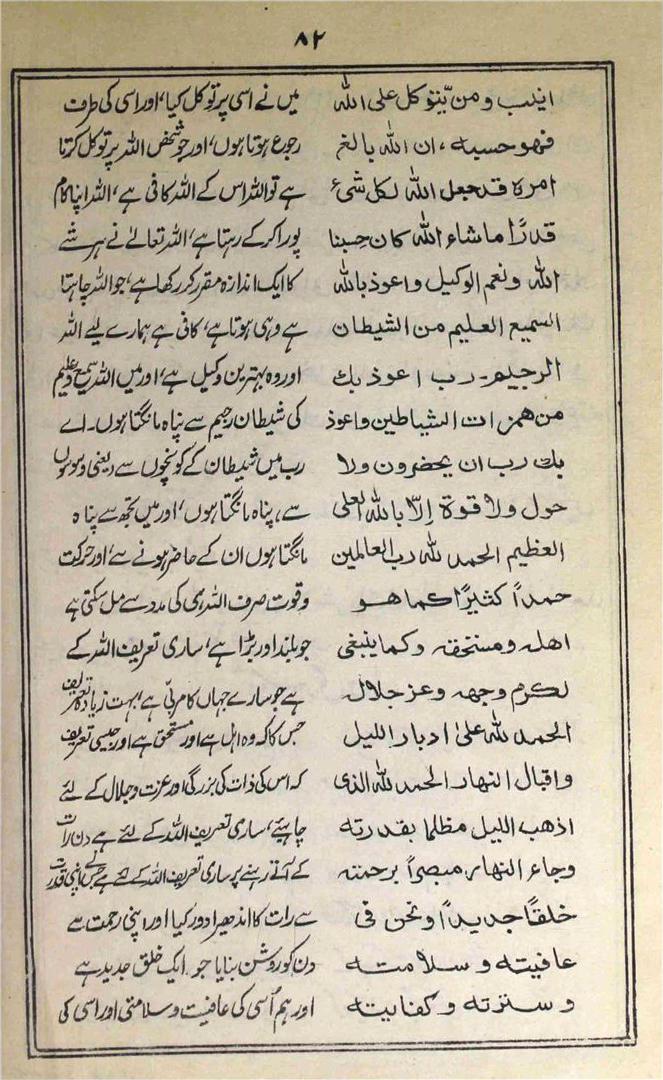 ۸۲
انیب ومن یتوکل علی الله
فهو حسبه، ان الله بالغ
امره قد جعل الله لکل شیء
قدرًا ماشاء الله کان حسبنا
الله ونعم الوکیل واعوذ بالله
السمیع العلیم من الشیطان
الرجیم۔ رب اعوذ بك
من همزات الشیاطین واعوذ
بك رب ان یحضرون ولا
حول ولا قوة إلّا بالله العلی
العظیم الحمد لله رب العالمین
حمداً کثیرًا کما هو
اهله ومستحقه وکما ینبغی
لکرم وجهه وعز جلال
الحمد لله علیٰ ادبار اللیل
واقبال النهار الحمد لله الذی
اذهب اللیل مظلما بقدرته
وجاء النهار مبصراً برحمته
خلقًا جدیدًا ونحن فی
عافیته وسلامته
وسترته وکفایته
میں نے اسی پر توکل کیا، اور اسی کی طرف
رجوع ہوتا ہوں، اور جو شخص اللہ پر توکل کرتا
ہے تو اللہ اس کے اللہ کافی ہے، اللہ اپنا کام
پورا کر کے رہتا ہے، اللہ تعالےٰ نے ہر شے
کا ایک اندازہ مقرر کر رکھا ہے، جو اللہ چاہتا
ہے وہی ہوتا ہے، کافی ہے ہمارے لیے اللہ
اور وہ بہترین وکیل ہے، اور میں اللہ سمیع و علیم
کی شیطان رجیم سے پناہ مانگتا ہوں۔ اے
رب میں شیطان کے کونچوں سے (یعنی وسوسوں
سے، پناہ مانگتا ہوں، اور میں تجھ سے پناہ
مانگتا ہوں ان کے حاضر ہونے سے، اور حرکت
و قوت صرف اللہ ہی کی مدد سے مل سکتی ہے
جو بلند اور بڑا ہے، ساری تعریف اللہ کے
ہے جو سارے جہاں کا مربّی ہے، بہت زیادہ تعریف
جس کا کہ وہ اہل ہے اور مستحق ہے اور جیسی تعریف
کہ اس کی ذات کی بزرگی اور عزت و جلال کے لئے
چاہیئے، ساری تعریف اللہ کے لئے ہے دن رات
کے آتے رہنے پر ساری تعریف اللہ کے لئے ہے جس نے اپنی قدرت
سے رات کا اندھیرا دور کیا اور اپنی رحمت سے
دن کو روشن بنایا جو ایک خلق جدید ہے
اور ہم اُسی کی عافیت و سلامتی اور اسی کی